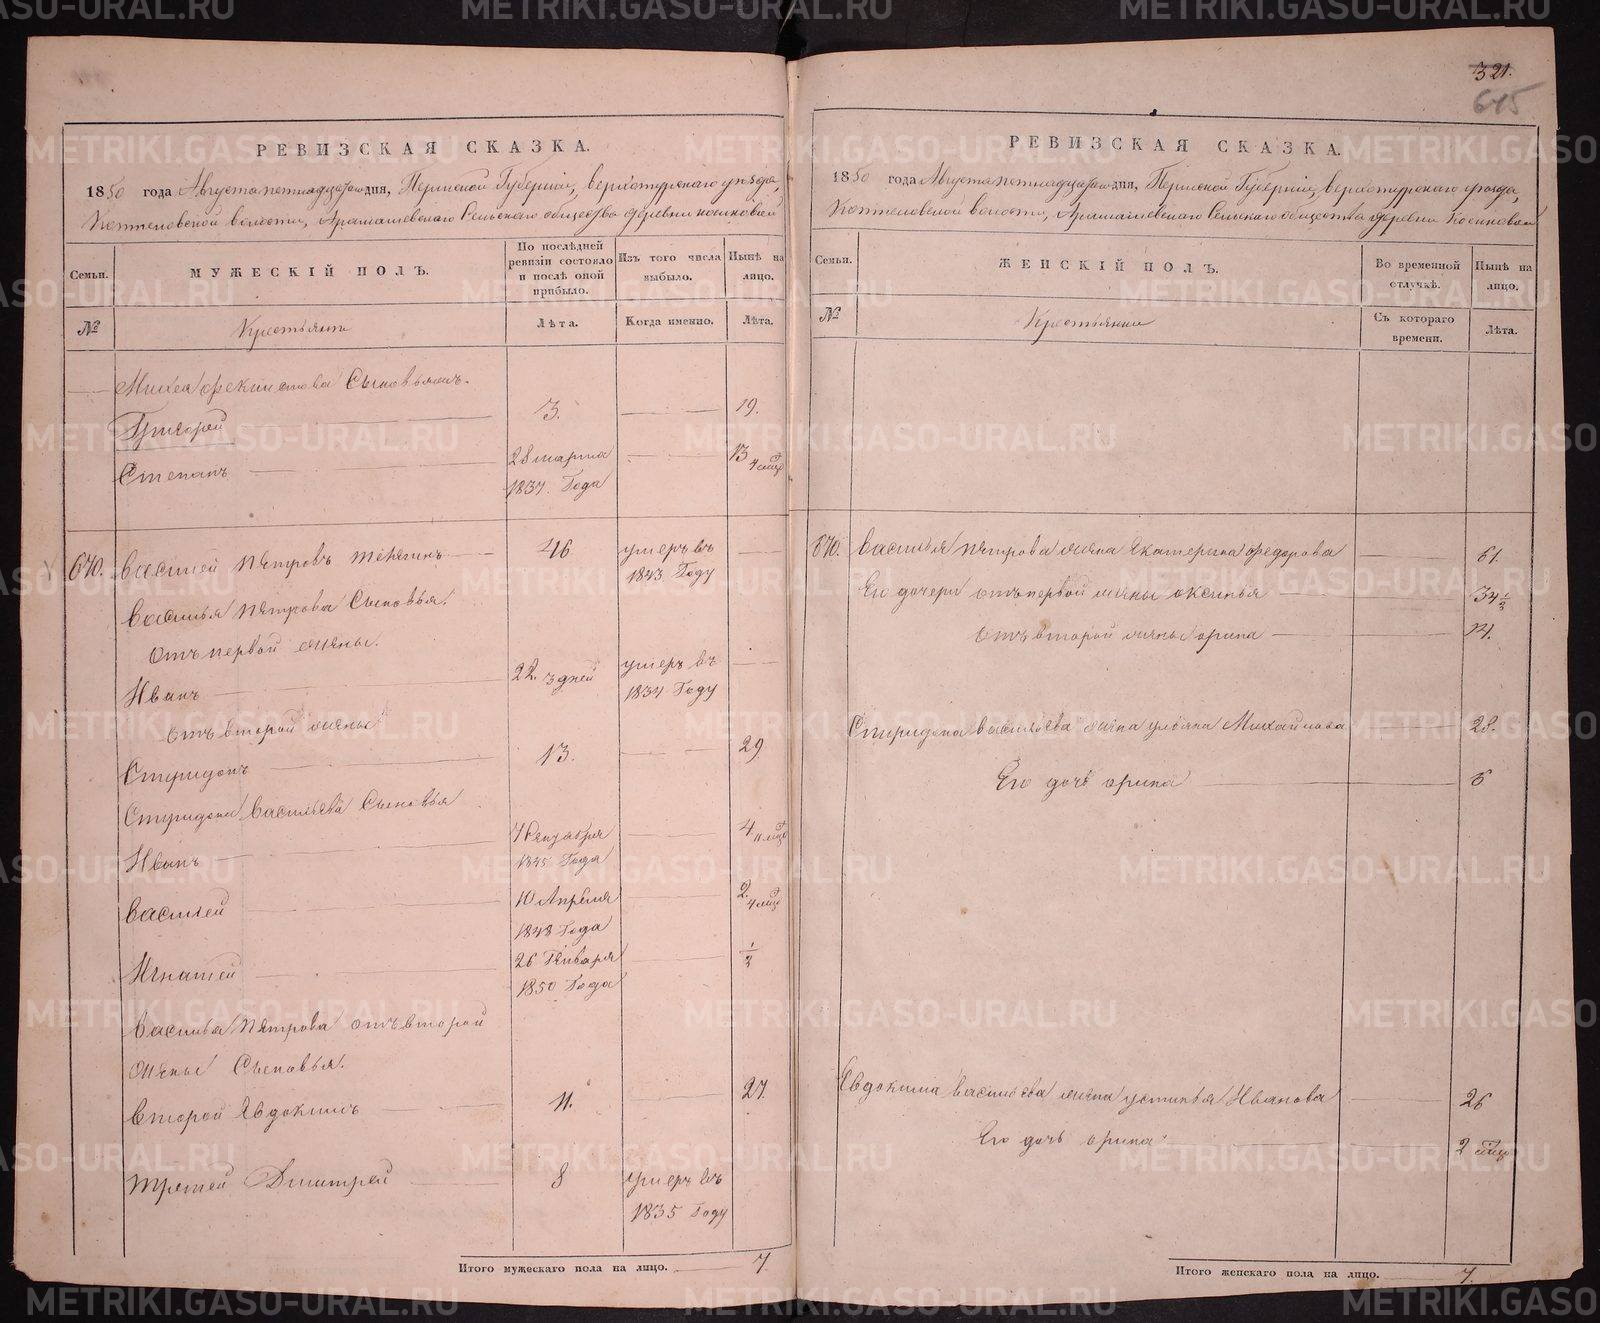 321.
645
РЕВИЗСКАЯ СКАЗКА.
1850 года Августа пятнадцатаго дня, Пермской Губернии, верхотурского уезда,
волости, Арамашевского Сельского общества деревни Косиковой
Семьи.
МУЖЕСКІЙ ПОЛЪ.
По послѣдней ревизіи состояло и послѣ оной прибыло.
Изъ того числа выбыло.
Нынѣ на лицо.
№
Крестьяни
Лѣта.
Когда именно.
Лѣта.
Сыновьямъ.
Григорей 3. 19.
Степанъ 28 марта 1837. Года 13 4 мцд
640. Василей Пятровъ 46 умеръ въ 1843 Году
Василья Пятрова Сыновья.
отъ первой жяны.
Иванъ 22. 3 дней умеръ въ 1834 Году
отъ второй жяны
Спиридонъ 13. 29
Спиридона Васильева Сыновья
Иванъ 1845 Года 4 11 мцд
Василей 10 Апреля 1848 Года 2. 4 мцд
Игнатей 26 Января 1850 Года 1/2
Василья Пятрова отъ второй
жяны Сыновья.
второй Явдокимъ 11. 27.
третей Дмитрей 8 умеръ въ 1835 Году
Итого мужескаго пола на лицо. 7.
РЕВИЗСКАЯ СКАЗКА.
1850 года Августа пятнадцатаго дня, Пермской Губернии, верхотурского уезда,
волости, Арамашевского Сельского общества деревни Косиковой
Семьи.
ЖЕНСКІЙ ПОЛЪ.
Во временной отлучкѣ.
Нынѣ на лицо.
№
Крестьянки
Съ котораго времени.
Лѣта.
640. Василья Пятрова жяна Якатерина Федорова 61.
Его дочери отъ первой жяны Оксинья 34 1/2
отъ второй жяны Орина 14.
Спиридона Васильева жяна Ульяна Михайлова 28.
Его дочь Орина 6
Явдокима Васильева жяна Устинья Иванова 26
Его дочь Орина 2 мцд
Итого женскаго пола на лицо. 7.